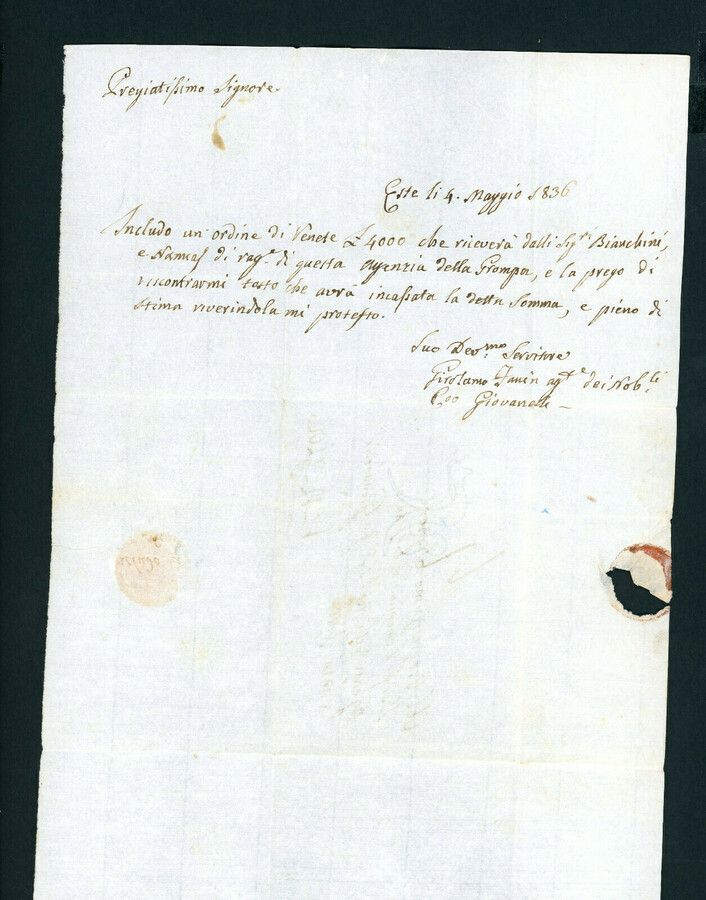 Pregiatissimo Signore.
Este li 4. Maggio 1836
Includo un ordine di Venete £ 4000 che riceverà dalli Sig.ri Bianchini,
e di rag.e di questa Agenzia della Grompa, e la prego di
riscontrarmi tosto che avrà incassata la detta Somma, e pieno di
stima riverindola mi protesto.
Suo Dev.mo Servitore
Girolamo ag.te dei Nob.li
Giovanelli